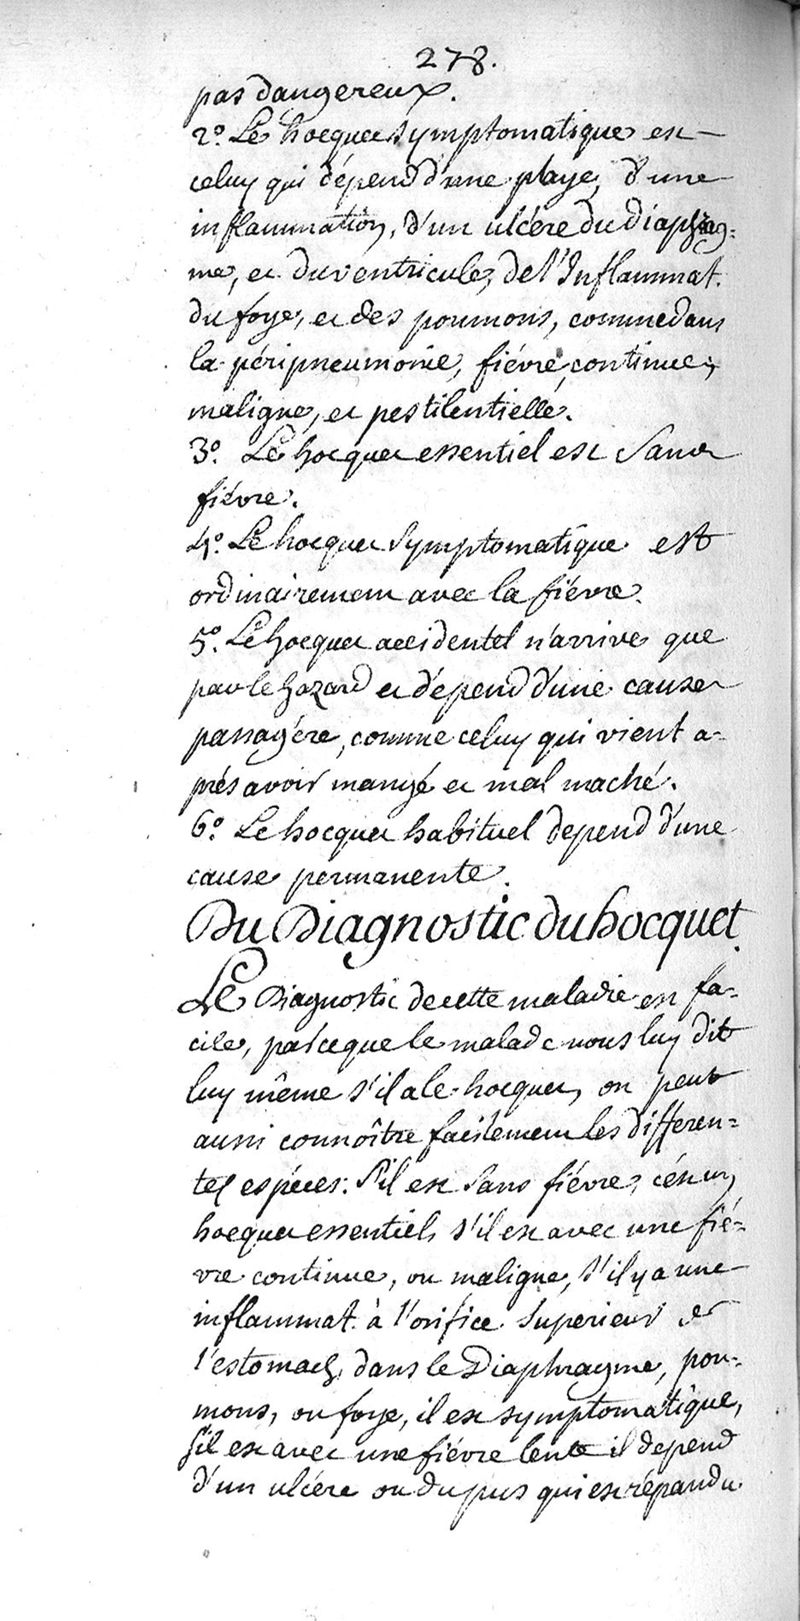 278.
pas dangereux.
2º. Le hocquet symptomatique est
celuy qui dépend d'une playe, d'une
inflammation, d'un ulcére du diaphrag=
me, et du ventricule, de l'Inflammat.
du foye, et des poumons, comme dans
la péripneumonie, fiévre continue,
maligne, et pestilentielle.
3º. Le hocquet essentiel est sans
fiévre.
4º. Le hocquet symptomatique est
ordinairement avec la fiévre.
5º. Le hocquet accidentel n'arrive que
par le hazard et dépend d'une cause
passagére, comme celuy qui vient a-
prés avoir mangé et mal maché.
6º. Le hocquet habituel depend d'une
cause permanente.
Du Diagnostic du hocquet.
Le Diagnostic de cette maladie est fa-
cile, parceque le malade nous luy dit
luy même s'il a le hocquet, on peut
aussi connoître facilement les differen=
tes espéces: s'il est sans fiévre, c'est un
hocquet essentiel, s'il est avec une fié=
vre continue, ou maligne, s'il y a une
inflammat. à l'orifice superieur de
l'estomach, dans le Diaphragme, pou=
mons, ou foye, il est symptomatique,
s'il est avec une fiévre lente il depend
d'un ulcére ou du pus qui est répandu